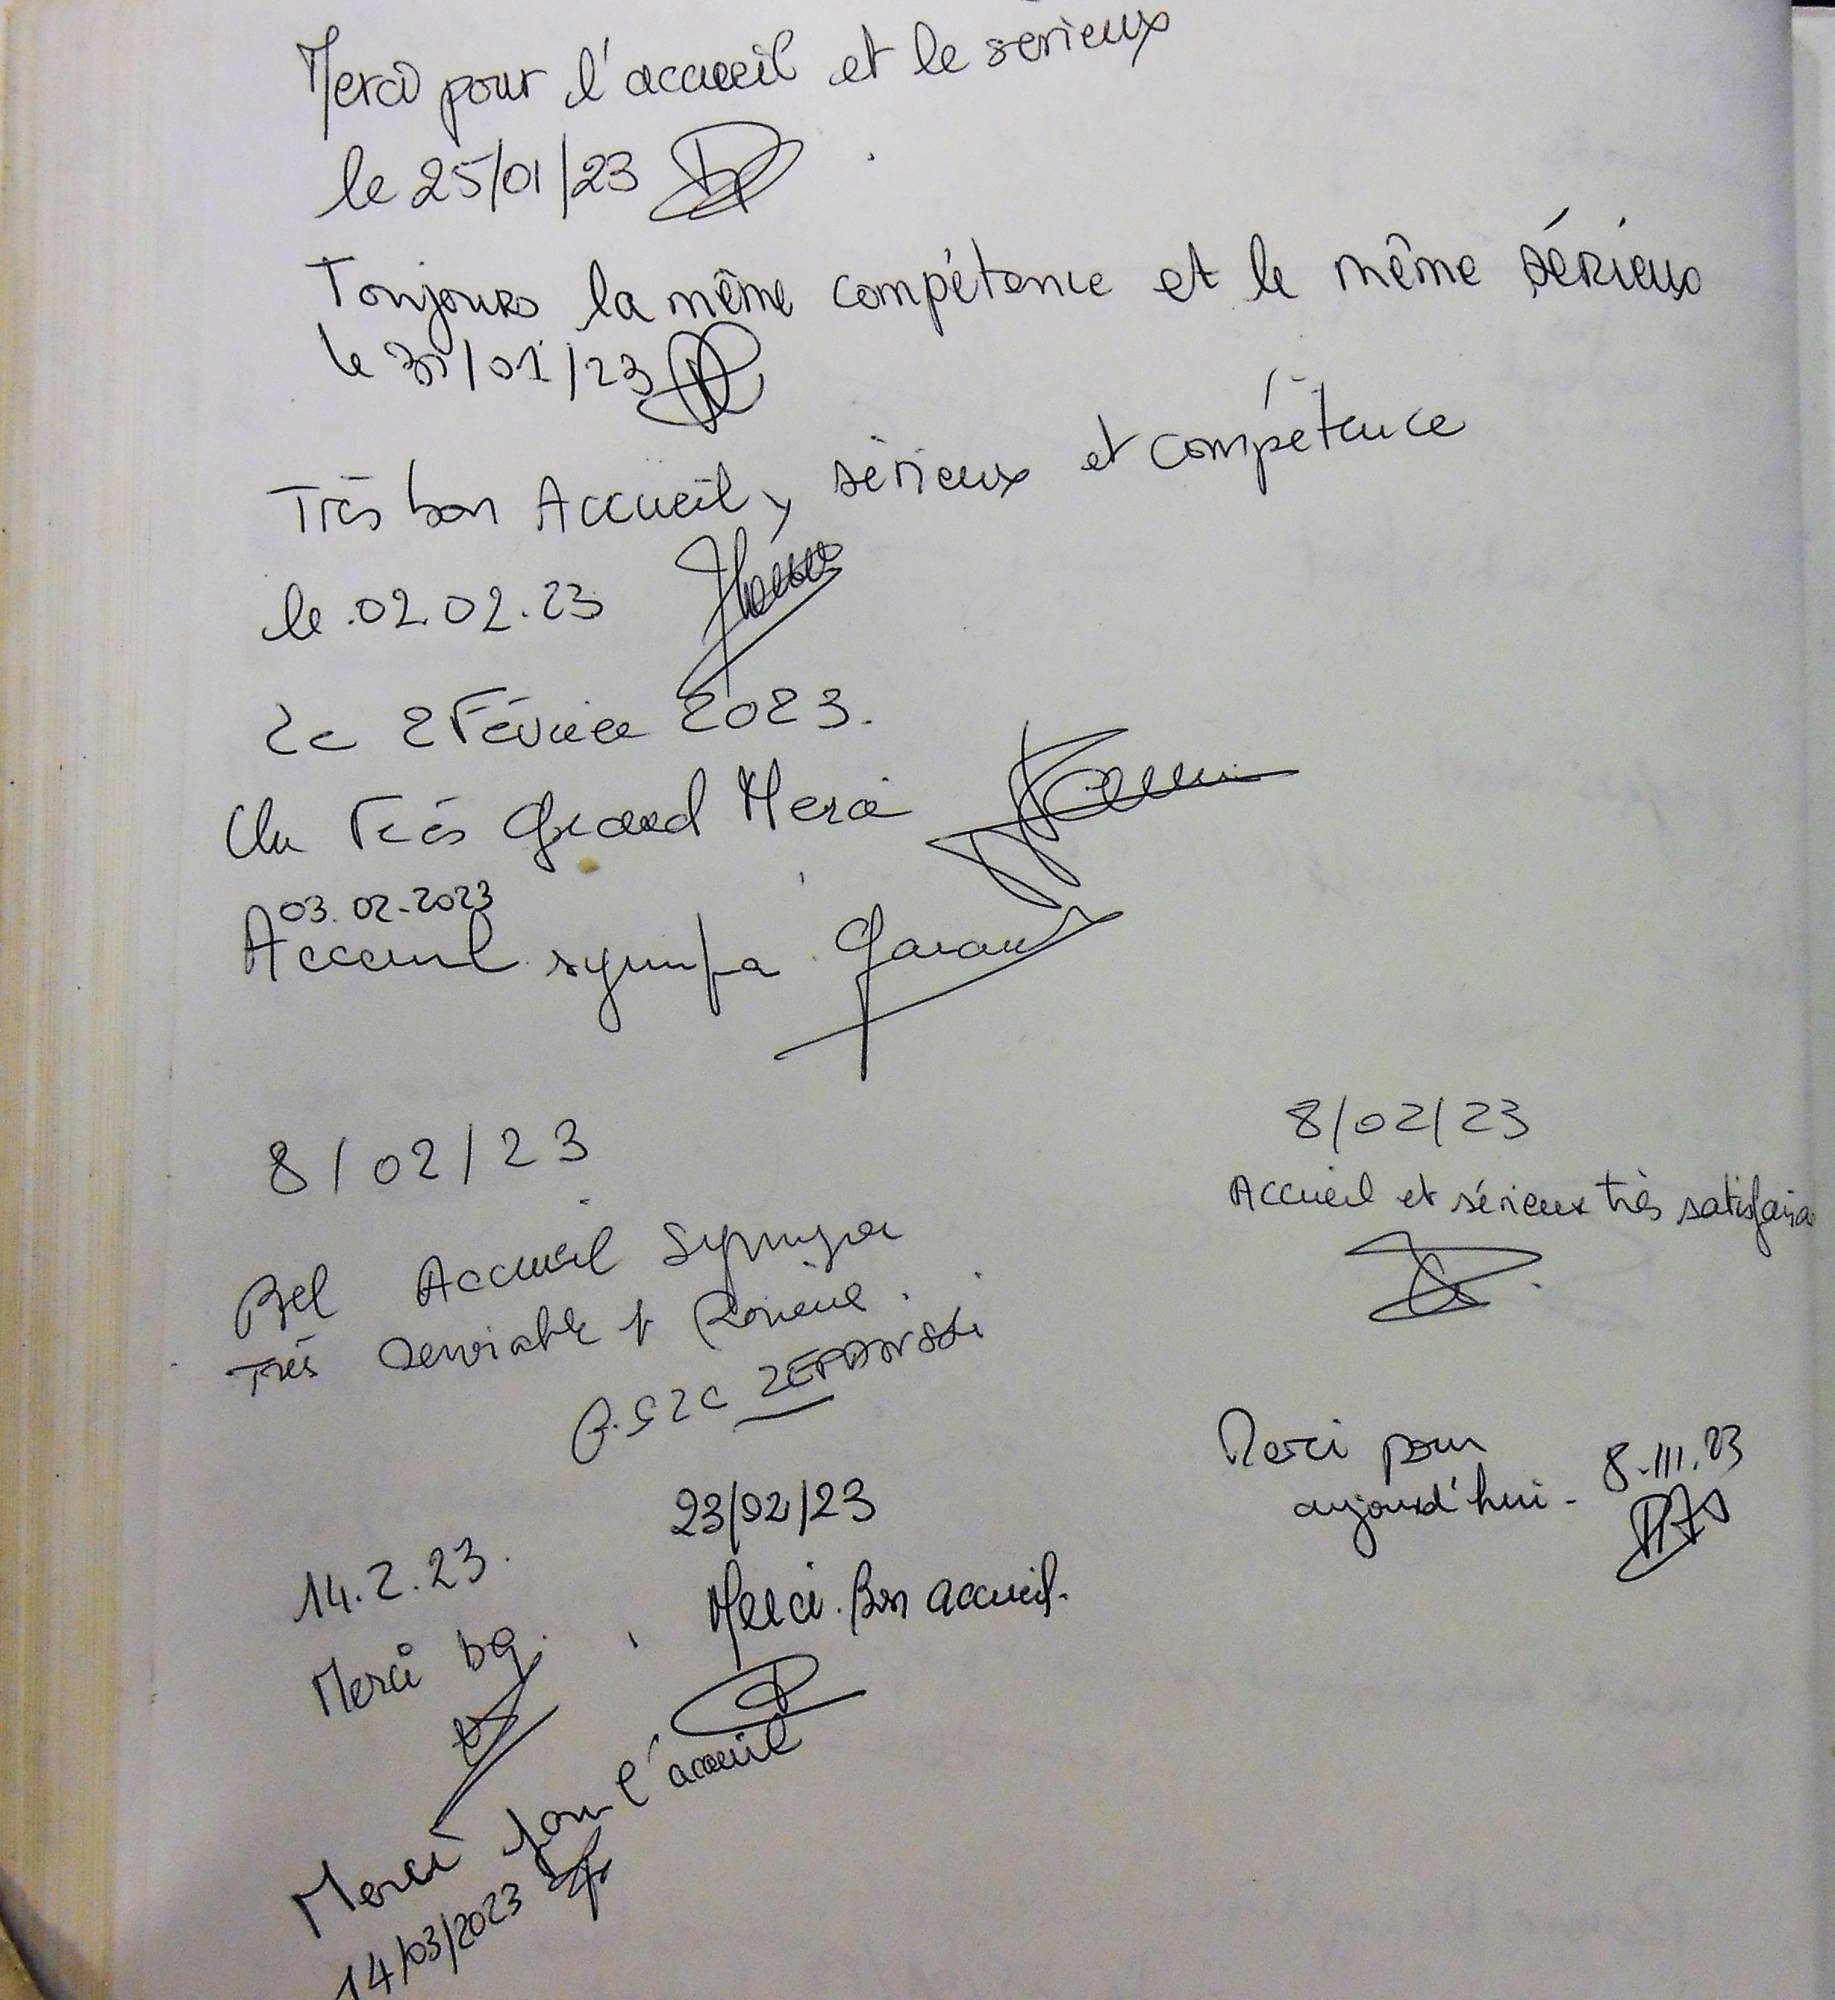 Merci pour l'accueil et le serieux
le 25/01/23
Toujours la même compétence et le même sérieux
le 31/01/23
Très bon Accueil, sérieux et compétence
le 02.02.23
Le 2 Février 2023.
Un Très Grand Merci
03.02.2023
Accueil sympa.
8/02/23
Bel Accueil Sympa
Très Serviable et
8/02/23
Accueil et sérieux très satisfaisa
Merci pour
aujourd'hui - 8.III.23
23/02/23
Merci. Bon accueil.
14.2.23.
Merci bg.
Merci pour l'accueil
14/03/2023